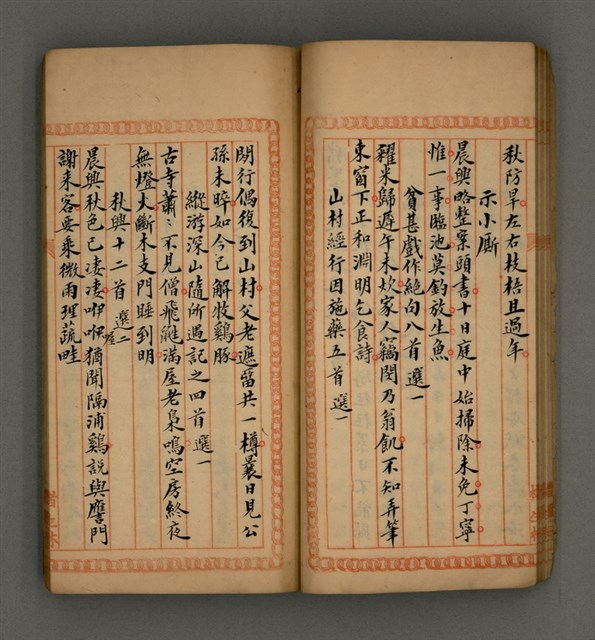 秋防旱左右枝梧且過年
示小廝
晨興略整案頭書十日庭中始掃除未免丁寧
惟一事臨池莫釣放生魚
貧甚戲作絕句八首 選一
糴米歸遲午未炊家人竊閔乃翁飢不知弄筆
東窗下正和淵明乞食詩
山村經行因施藥五首 選一
閒行偶復到山村父老遮留共一樽曩日見公
孫未晬如今已解牧雞豚
縱游深山隨所遇記之四首 選一
古寺蕭〻不見僧飛鼪滿屋老梟鳴空房終夜
無燈火斷木支門睡到明
秋興十二首 選二
晨興秋色已凄凄咿喔猶聞隔浦雞說與譍門
謝來客要乘微雨理蔬畦